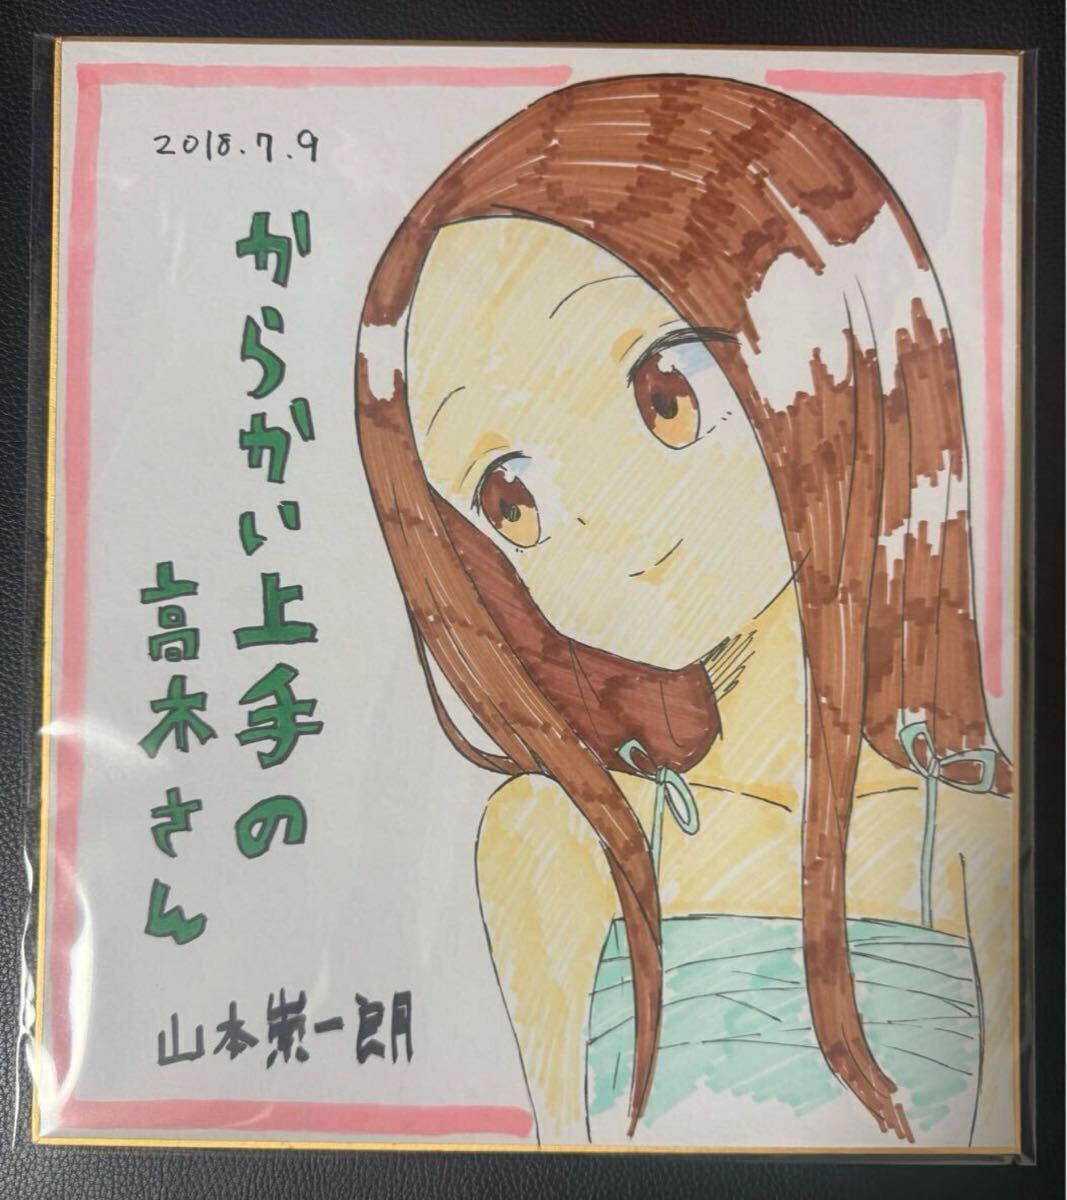 2018.7.9
からかい上手の
高木さん
山本崇一朗